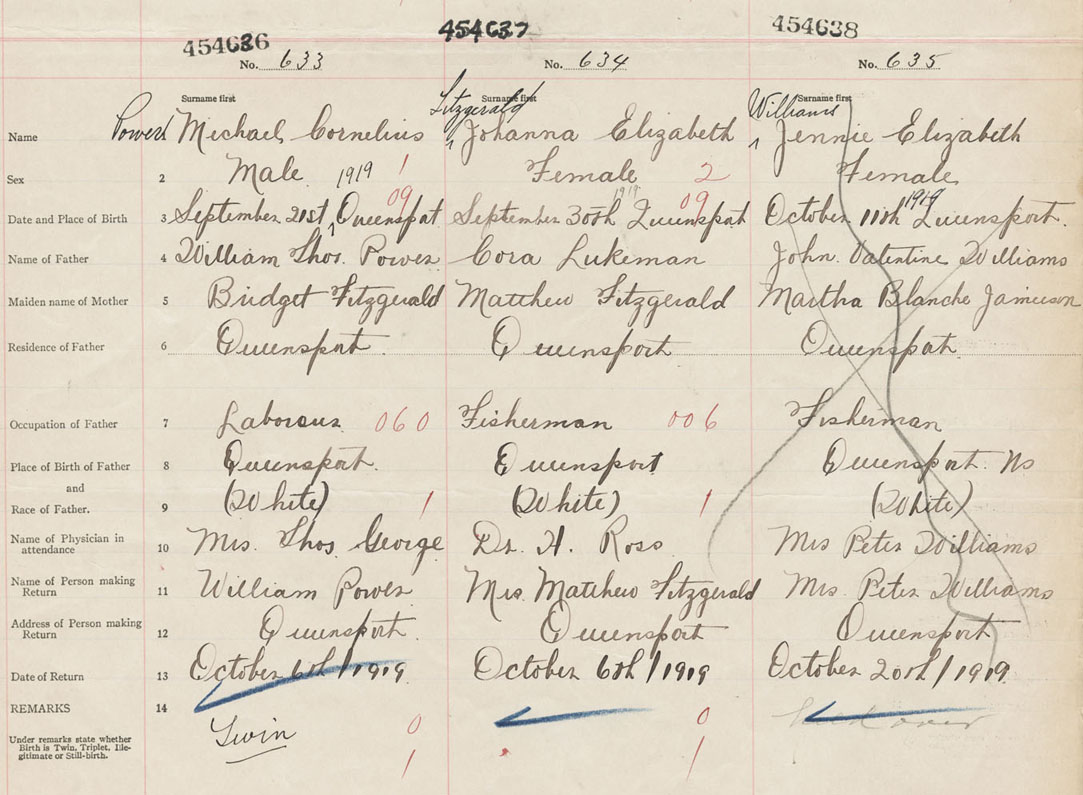 454636 454637 454638
No. 633 No. 634 No. 635
Surname first Surname first Surname first
Fitzgerald Williams
Name Power Michael Cornelius Johanna Elizabeth Jennie Elizabeth
Sex 2 Male 1919 1 Female 2 Female
09 1919 09 1919
Date and Place of Birth 3 September 21st, Queensport September 30th Queensport October 11th Queensport.
Name of Father 4 William Thos. Power Cora Lukeman John. Valentine Williams
Maiden name of Mother 5 Bridget Fitzgerald Matthew Fitzgerald Martha Blanche Jamieson
Residence of Father 6 Queensport. Queensport Queensport.
Occupation of Father 7 Laborour 060 Fisherman 006 Fisherman
Place of Birth of Father 8 Queensport. Queensport Queensport. NS
and
Race of Father. 9 (White) 1 (White) 1 (White)
Name of Physician in
attendance 10 Mrs. Thos. George Dr. H. Ross Mrs Peter Williams
Name of Person making
Return 11 William Power Mrs. Matthew Fitzgerald Mrs. Peter Williams
Address of Person making
Return 12 Queensport. Queensport Queensport
Date of Return 13 October 6th/1919. October 6th/1919 October 20th/1919
REMARKS 14 Twin 0 0
Under remarks state whether
Birth is Twin, Triplet, Ille-
gitimate or Still-birth. 1 1